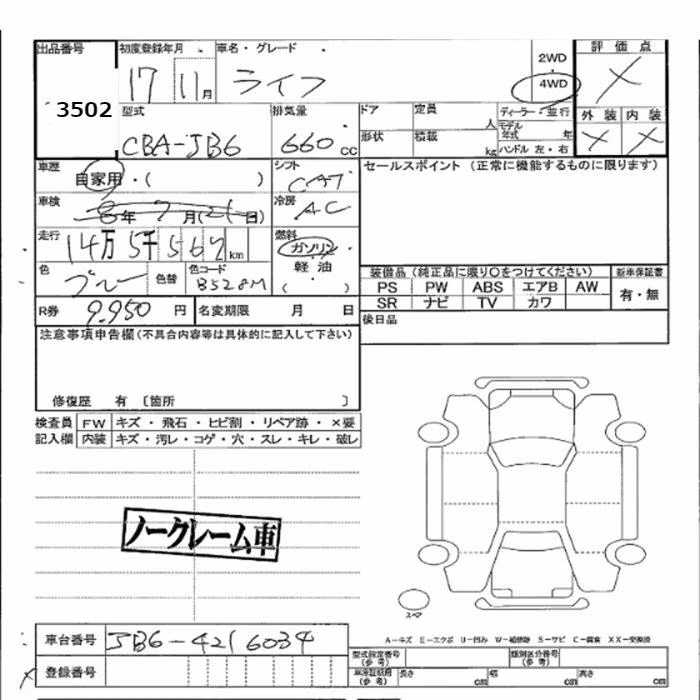 出品番号 初度登録年月 車名・グレード 評価点
3502 17 11月 ライフ 2WD 4WD ×
型式 排気量 ドア 定員 人 ディーラー・並行 外装 内装
CBA-JB6 660cc 形状 積載 kg モデル年式 年 ハンドル 左・右 × ×
車歴 自家用・( ) シフト CAT セールスポイント (正常に機能するものに限ります)
車検 8年 7月(21日) 冷房 AC
走行 14万5千567km 燃料 ガソリン
色 ブルー 色替 色コード B528M 軽油 ( ) 装備品(純正品に限り○をつけてください) 新車保証書
PS PW ABS エアB AW 有・無
R券 9,950円 名変期限 月 日 SR ナビ TV カワ
後日品
注意事項申告欄(不具合内容等は具体的に記入して下さい)
修復歴 有 〔箇所 〕
検査員 FW キズ・飛石・ヒビ割・リペア跡・×要
記入欄 内装 キズ・汚レ・コゲ・穴・スレ・キレ・破レ
ノークレーム車
スペア
車台番号 JB6-4216034 A-キズ E-エクボ U-凹み W-補修跡 S-サビ C-腐食 XX-交換済
型式指定番号(参考) 類別区分番号(参考)
登録番号 車庫証明用(参考) 長さ cm 幅 cm 高さ cm